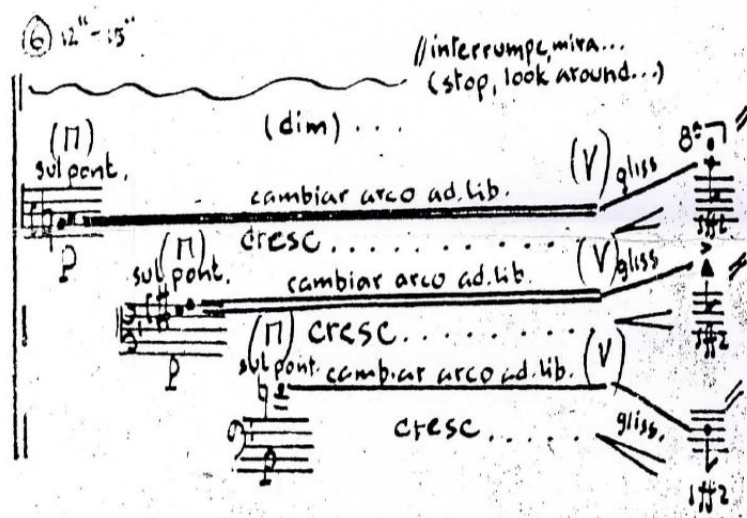 ⑥ 12"-15"
//interrumpe, mira...
(stop, look around...)
(dim) ...
(Π)
sul pont.
cambiar arco ad.lib.
(V)
gliss
8ª
p
cresc..........
sffz
(Π)
sul pont.
cambiar arco ad.lib.
(V)
gliss
p
cresc.........
sffz
(Π)
sul pont.
cambiar arco ad.lib.
(V)
gliss.
p
cresc......
sffz